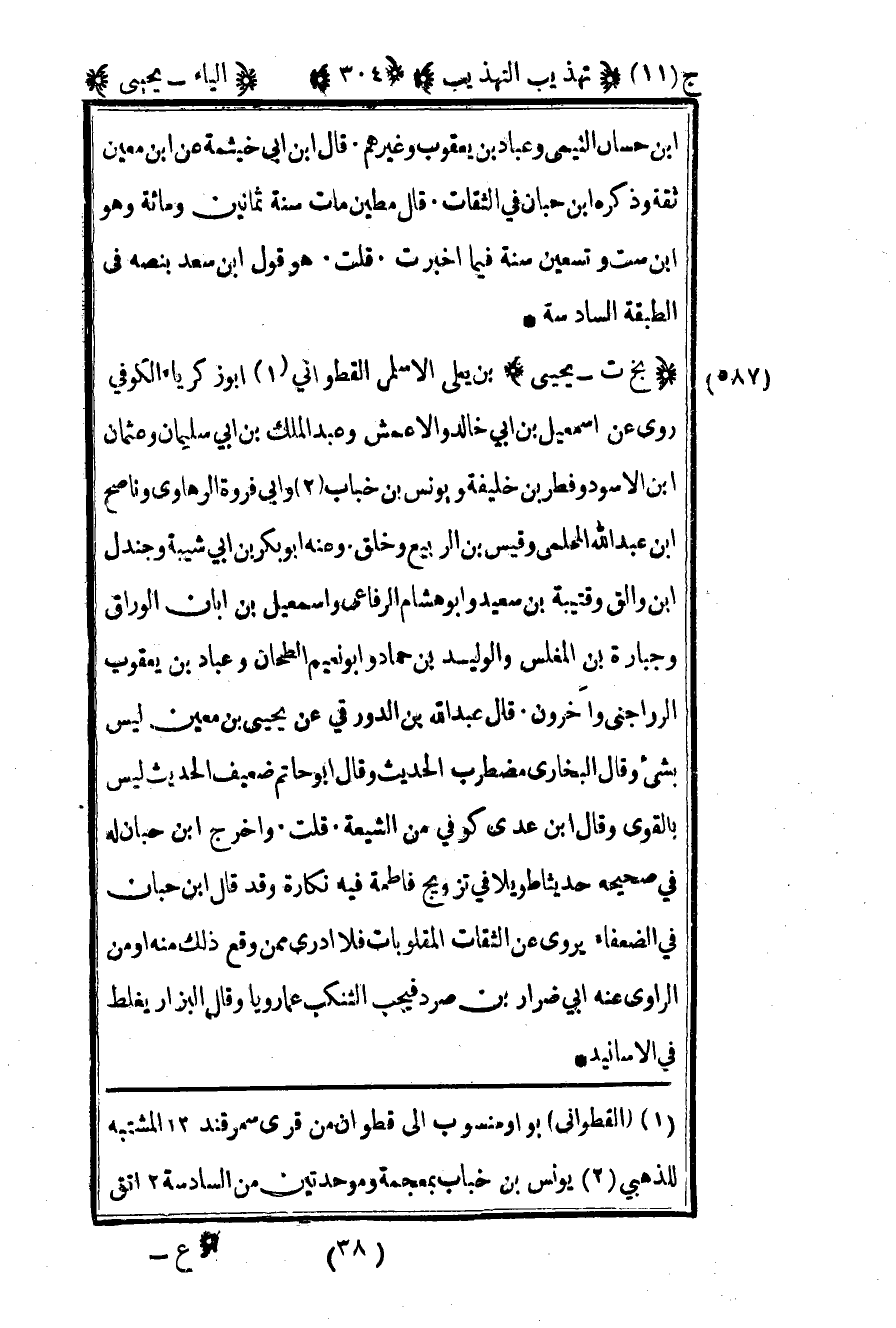 ج(١١) ﴿ تهذيب التهذيب ﴾ ﴿٣٠٤﴾ ﴿ الياء ـ يحيى ﴾
ابن حسان التيمى وعباد بن يعقوب وغيرهم ٠ قال ابن ابي خيثمة عن ابن معين
ثقة وذكره ابن حبان في الثقات ٠ قال مطين مات سنة ثمانين ومائة وهو
ابن ست و تسعين سنة فيما اخبرت ٠ قلت ٠ هو قول ابن سعد بنصه فى
الطبقة السادسة •
﴿ بخ ت ـ يحيى ﴾ بن يعلى الاسلمى القطواني (١) ابوزكرياء الكوفي (٥٨٧)
روى عن اسمعيل بن ابي خالد والاعمش وعبد الملك بن ابي سليمان وعثمان
ابن الاسود وفطر بن خليفة ويونس بن خباب (٢) وابي فروة الرهاوى وناصح
ابن عبد الله المحلمى وقيس بن الربيع وخلق ٠ وعنه ابو بكر بن ابي شيبة وجندل
ابن والق وقتيبة بن سعيد وابو هشام الرفاعى واسمعيل بن ابان الوراق
وجبارة بن المغلس والوليد بن حماد وابونعيم الطحان وعباد بن يعقوب
الرواجنى وآخرون ٠ قال عبد الله بن الدورقي عن يحيى بن معين ليس
بشئ وقال البخارى مضطرب الحديث وقال ابو حاتم ضعيف الحديث ليس
بالقوى وقال ابن عدى كوفي من الشيعة ٠ قلت ٠ واخرج ابن حبان له
في صحيحه حديثا طويلا في تزويج فاطمة فيه نكارة وقد قال ابن حبان
في الضعفاء يروى عن الثقات المقلوبات فلا ادرى ممن وقع ذلك منه او من
الراوى عنه ابي ضرار بن صرد فيجب التنكب عمارويا وقال البزار يغلط
في الاسانيد •
(١) (القطوانى) بواو منسوب الى قطوان من قرى سمرقند ١٢ المشتبه
للذهبي (٢) يونس بن خباب بمعجمة وموحدتين من السادسة ٢ اتق
(٣٨) ﴿ ع ـ